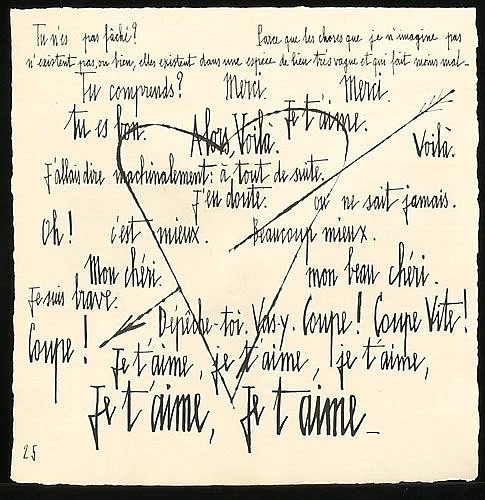 Tu n'es pas fâché? Parce que les choses que je n'imagine pas
n'existent pas, ou bien, elles existent dans une espèce de lieu très vague et qui fait moins mal_
Tu comprends? Merci. Merci.
tu es bon. Alors, Voilà. Je t'aime. Voilà.
J'allais dire machinalement: à tout de suite.
J'en doute. on ne sait jamais.
Oh! c'est mieux. Beaucoup mieux.
Mon chéri. mon beau chéri.
Je suis brave. Dépêche-toi. Vas-y. Coupe! Coupe Vite!
Coupe! Je t'aime, je t'aime, je t'aime,
Je t'aime, Je t'aime_
25